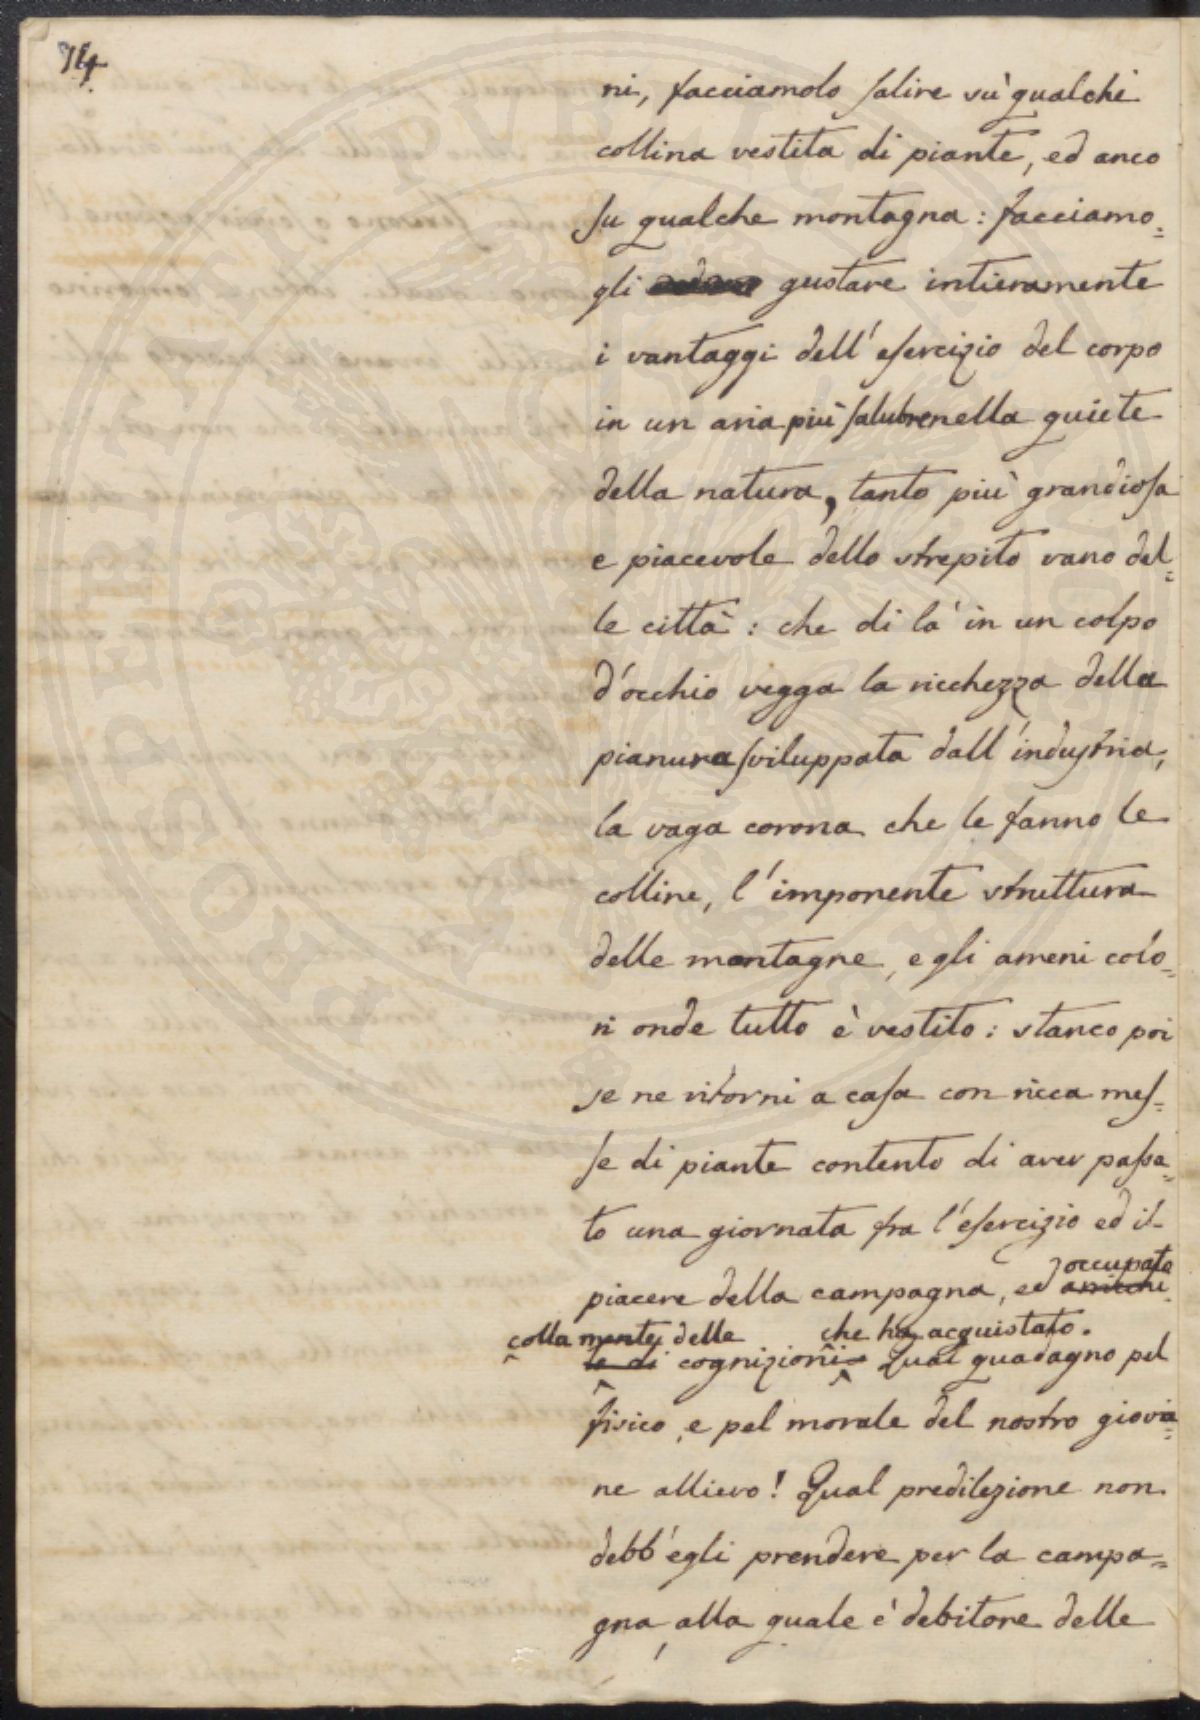 ni, facciamolo salire sù qualche
collina vestita di piante, ed anco
su qualche montagna: facciamo=
gli gustare intieramente
i vantaggi dell'esercizio del corpo
in un aria più salubre nella quiete
della natura, tanto più grandiosa
e piacevole dello strepito vano del=
le città: che di là in un colpo
d'occhio vegga la ricchezza della
pianura sviluppata dall'industria,
la vaga corona che le fanno le
colline, l'imponente struttura
delle montagne, e gli ameni colo=
ri onde tutto è vestito: stanco poi
se ne ritorni a casa con ricca mes=
se di piante contento di aver passa=
to una giornata fra l'esercizio ed il
occupata
piacere della campagna, ed arricchi
colla mente delle che ha acquistato.
te di cognizioni Qual guadagno pel
fisico, e pel morale del nostro giova=
ne allievo! Qual predilezione non
debb'egli prendere per la campa=
gna, alla quale è debitore delle
PROSPERITATI PUBLICAE